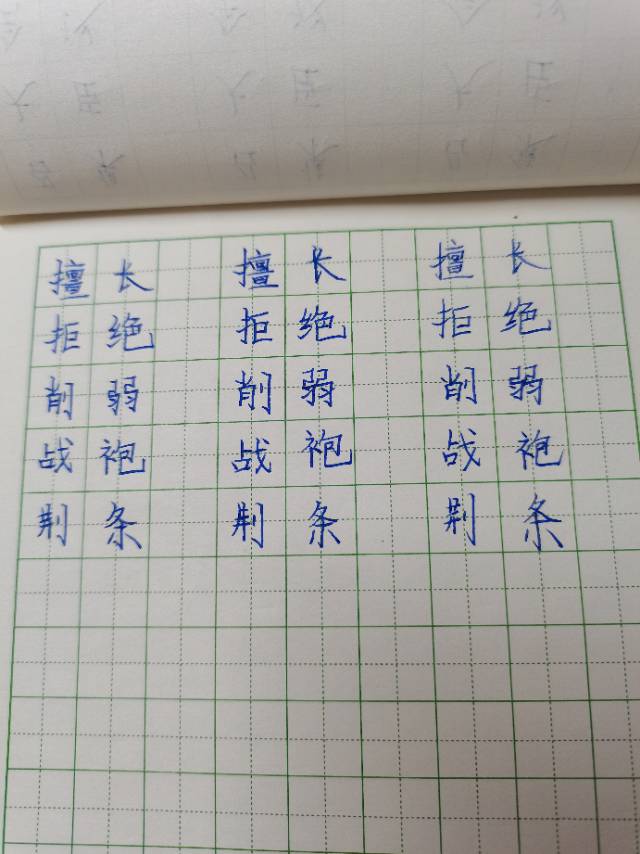 擅长 擅长 擅长
拒绝 拒绝 拒绝
削弱 削弱 削弱
战袍 战袍 战袍
荆条 荆条 荆条